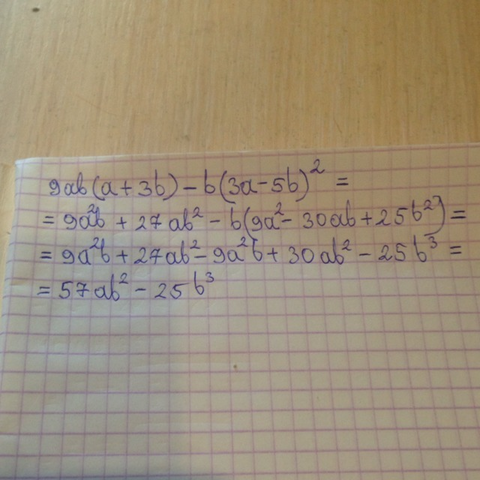 9ab(a+3b)-b(3a-5b)² =
= 9a²b + 27ab² - b(9a² - 30ab + 25b²) =
= 9a²b + 27ab² - 9a²b + 30ab² - 25b³ =
= 57ab² - 25b³